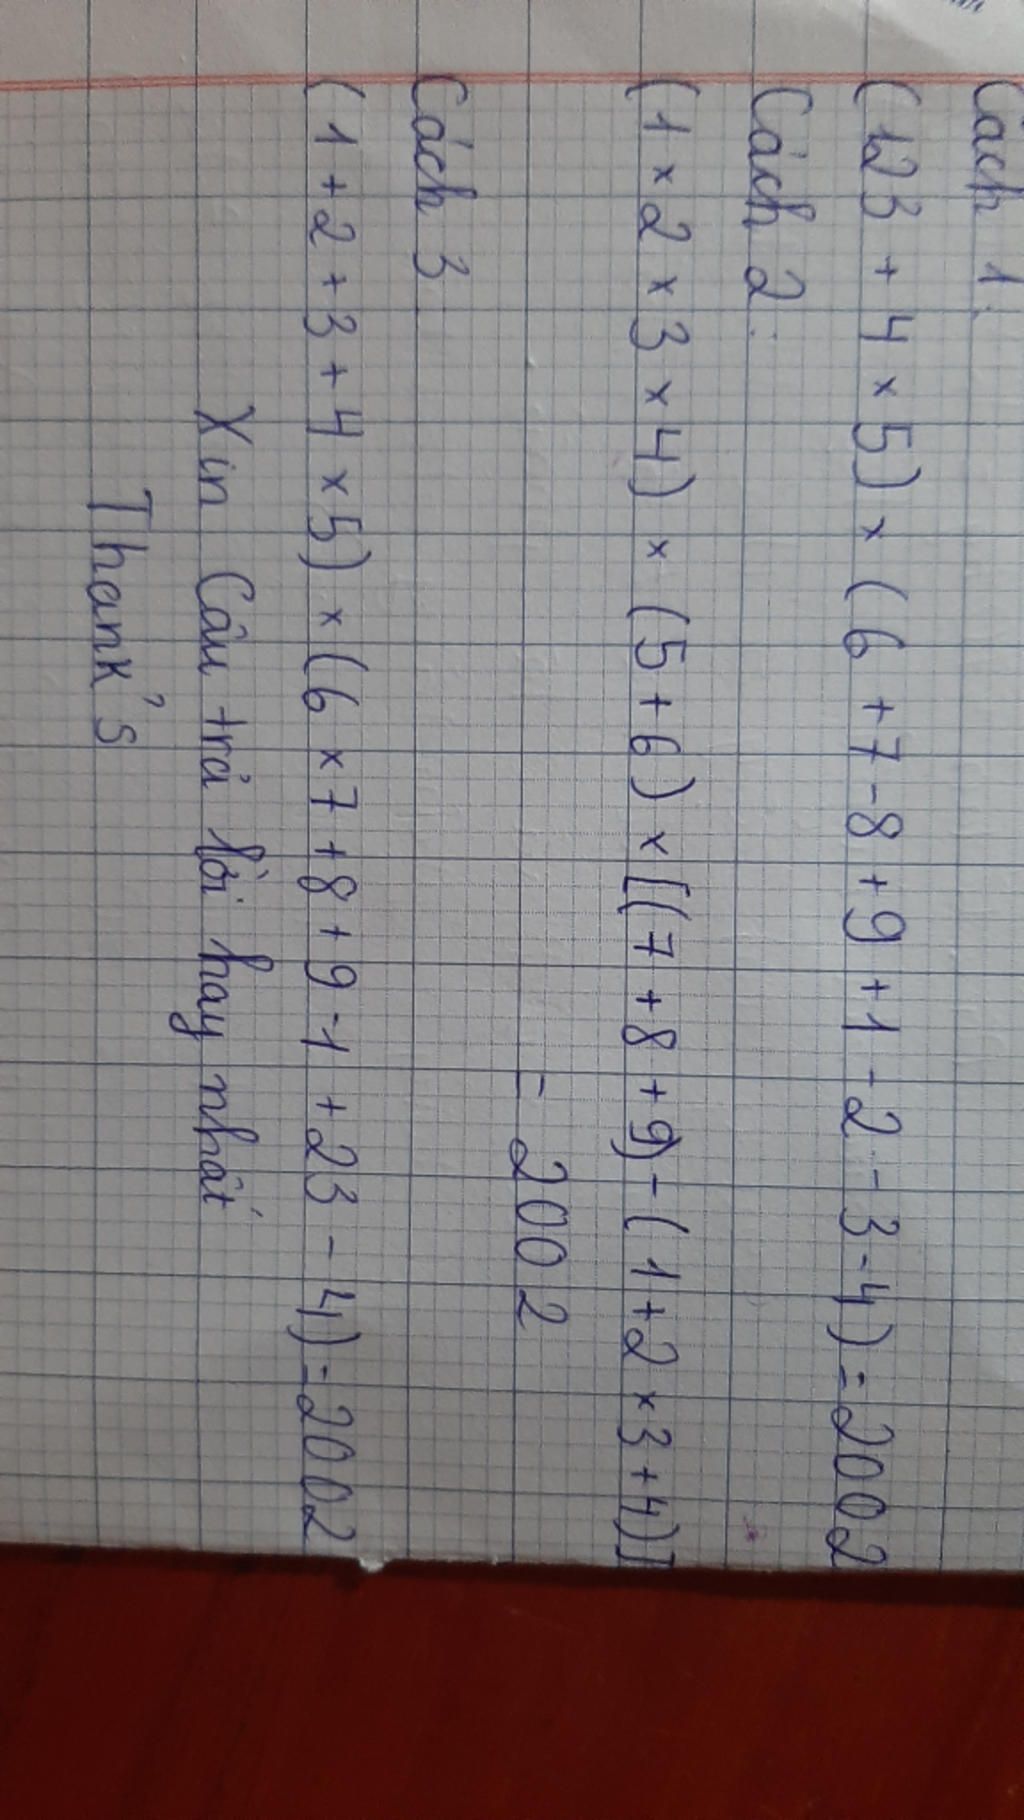 Cách 1:
(123 + 4 × 5) × (6 + 7 - 8 + 9 + 1 + 2 - 3 - 4) = 2002
Cách 2:
(1 × 2 × 3 × 4) × (5 + 6) × [(7 + 8 + 9) - (1 + 2 × 3 + 4)]
= 2002
Cách 3
(1 + 2 + 3 + 4 × 5) × (6 × 7 + 8 + 9 - 1 + 23 - 4) = 2002
Xin Câu trả lời hay nhất
Thank's